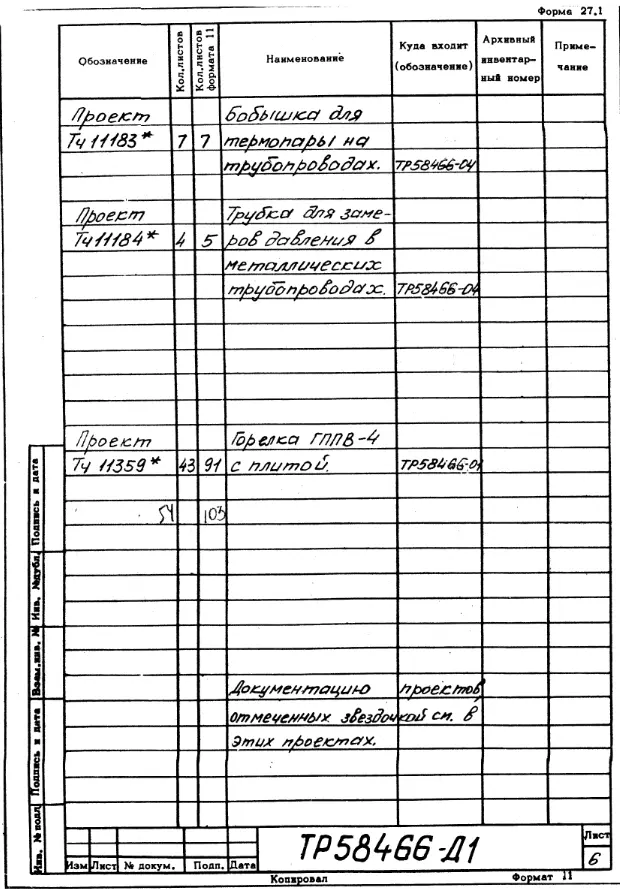 Форма 27.1
Обозначение Кол.листов Кол.листов формата 11 Наименование Куда входит (обозначение) Архивный инвентар- ный номер Приме- чание
Проект Бобышка для
Тч 11183* 7 7 термопары на
трубопроводах. ТР58466-04
Проект Трубка для заме-
Тч11184* 4 5 ров давления в
металлических
трубопроводах. ТР58466-04
Проект Горелка ГППВ-4
Тч 11359* 43 91 с плитой. ТР58466-01
54 103
Документацию проектов,
отмеченных звездочкой см. в
этих проектах.
Инв. № подл. Подпись и дата Взам.инв. № Инв. №дубл. Подпись и дата
ТР58466-Д1
Лист
6
Изм Лист № докум. Подп. Дата
Копировал Формат 11